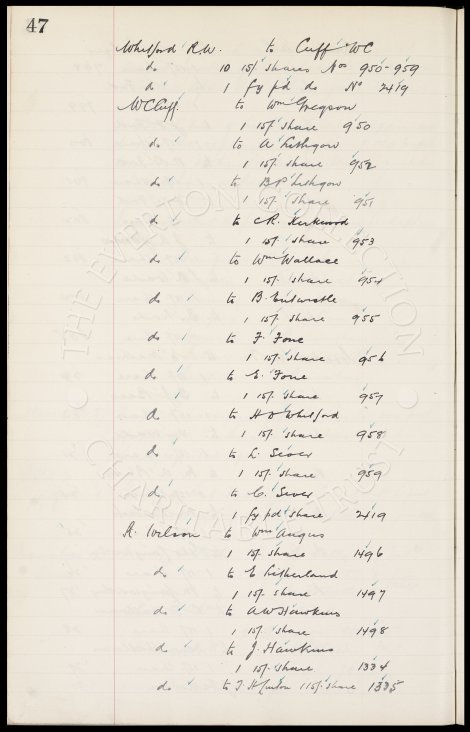 47
Whitford R.W. to Cuff WC
do 10 15/. shares Nos 950-959
do 1 fy pd do No 2419
WC Cuff to Wm Gregson
1 15/. share 950
do to A Lithgow
1 15/. share 952
do to B P Lithgow
1 15/. share 951
do to C R. Kirkwood
1 15/. share 953
do to Wm Wallace
1 15/. share 954
do to B. Entwistle
1 15/. share 955
do to F. Fone
1 15/. share 956
do to E. Fone
1 15/. share 957
do to H D Whitford
1 15/. share 958
do to L. Sever
1 15/. share 959
do to C. Sever
1 fy pd share 2419
R. Wilson to Wm Angus
1 15/. share 1496
do to E Litherland
1 15/. share 1497
do to A W Hawkins
1 15/. share 1498
do to J. Hawkins
1 15/. share 1334
do to J. H 1 15/. share 1335
THE EVERTON COLLECTION
CHARITABLE TRUST